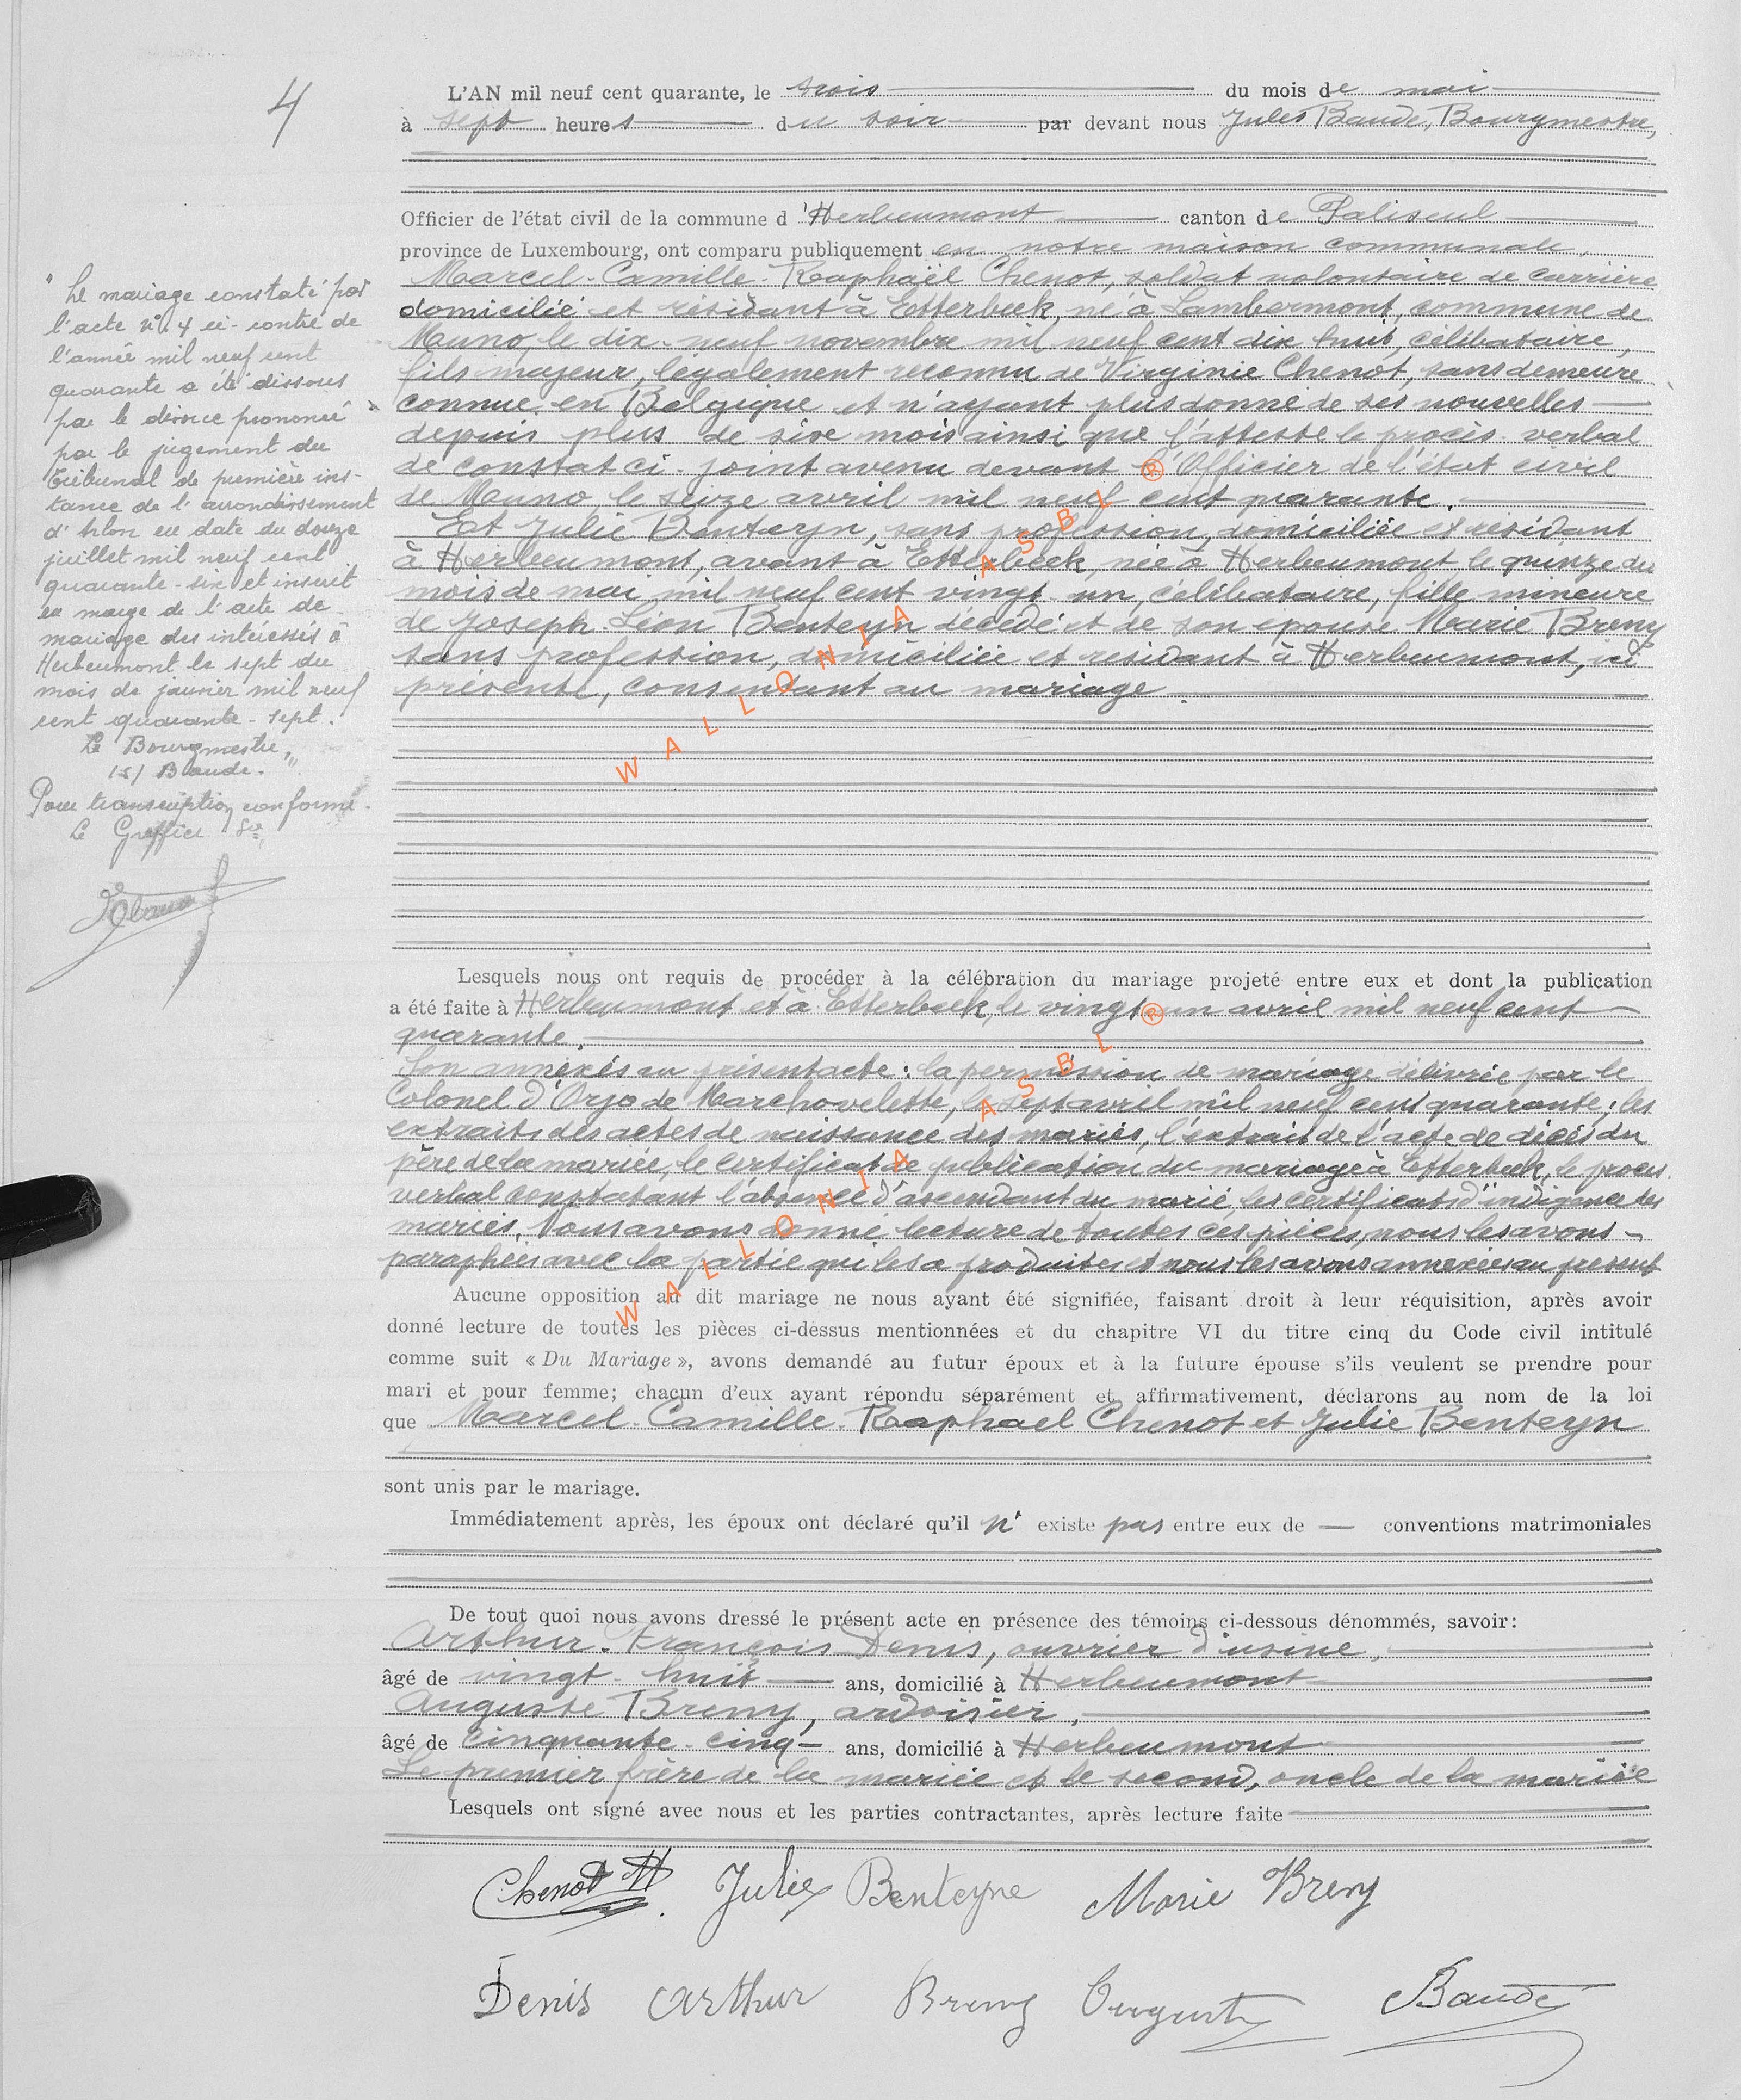 4
L'AN mil neuf cent quarante, le trois du mois de mai
à sept heures du soir par devant nous Jules Baude, Bourgmestre,
Officier de l'état civil de la commune d'Herbeumont canton de Paliseul
province de Luxembourg, ont comparu publiquement en notre maison communale,
Marcel-Camille-Raphaël Chenot, soldat volontaire de carrière
domicilié et résidant à Etterbeek, né à Lambermont, commune de
Muno, le dix-neuf novembre mil neuf cent dix huit, célibataire,
fils majeur, légalement reconnu de Virginie Chenot, sans demeure
connue en Belgique et n'ayant plus donné de ses nouvelles
depuis plus de six mois ainsi que l'atteste le procès-verbal
de constat ci-joint avenu devant l'Officier de l'état civil
de Muno, le seize avril mil neuf cent quarante.
Et Julie Benteyn, sans profession, domiciliée et résidant
à Herbeumont, avant à Etterbeek, née à Herbeumont le quinze du
mois de mai mil neuf cent vingt-un, célibataire, fille mineure
de Joseph-Léon Benteyn décédé et de son épouse Marie Breny
sans profession, domiciliée et résidant à Herbeumont, ici
présente, consentant au mariage.
"Le mariage constaté par
l'acte n°. 4 ci-contre de
l'année mil neuf cent
quarante a été dissous
par le divorce prononcé
par le jugement du
Tribunal de première ins-
tance de l'arrondissement
d'Arlon en date du douze
juillet mil neuf cent
quarante-six et inscrit
en marge de l'acte de
mariage des intéressés à
Herbeumont le sept du
mois de janvier mil neuf
cent quarante-sept.
Le Bourgmestre,
(s) Baude."
Pour transcription conforme.
Le Greffier
WALLONIA ASBL ®
Lesquels nous ont requis de procéder à la célébration du mariage projeté entre eux et dont la publication
a été faite à Herbeumont et à Etterbeek, le vingt-un avril mil neuf cent
quarante.
Son annexés au présent acte : la permission de mariage délivrée par le
Colonel d'Orjo de Marchovelette, le sept avril mil neuf cent quarante ; les
extraits des actes de naissance des mariés, l'extrait de l'acte de décès du
père de la mariée, le certificat de publication du mariage à Etterbeek, le procès
verbal constatant l'absence d'ascendant du marié, les certificats d'indigence des
mariés. Nous avons donné lecture de toutes ces pièces, nous les avons
paraphées avec la partie qui les a produites et nous les avons annexées au présent
WALLONIA ASBL ®
Aucune opposition au dit mariage ne nous ayant été signifiée, faisant droit à leur réquisition, après avoir
donné lecture de toutes les pièces ci-dessus mentionnées et du chapitre VI du titre cinq du Code civil intitulé
comme suit « Du Mariage », avons demandé au futur époux et à la future épouse s'ils veulent se prendre pour
mari et pour femme; chacun d'eux ayant répondu séparément et affirmativement, déclarons au nom de la loi
que Marcel-Camille-Raphael Chenot et Julie Benteyn
sont unis par le mariage.
Immédiatement après, les époux ont déclaré qu'il n'existe pas entre eux de — conventions matrimoniales
De tout quoi nous avons dressé le présent acte en présence des témoins ci-dessous dénommés, savoir:
Arthur-François Denis, ouvrier d'usine,
âgé de vingt-huit ans, domicilié à Herbeumont
Auguste Breny, ardoisier,
âgé de cinquante-cinq ans, domicilié à Herbeumont
Le premier frère de la mariée et le second, oncle de la mariée
Lesquels ont signé avec nous et les parties contractantes, après lecture faite
Chenot M Julie Benteyne Marie Breny
Denis Arthur Breny August Baude